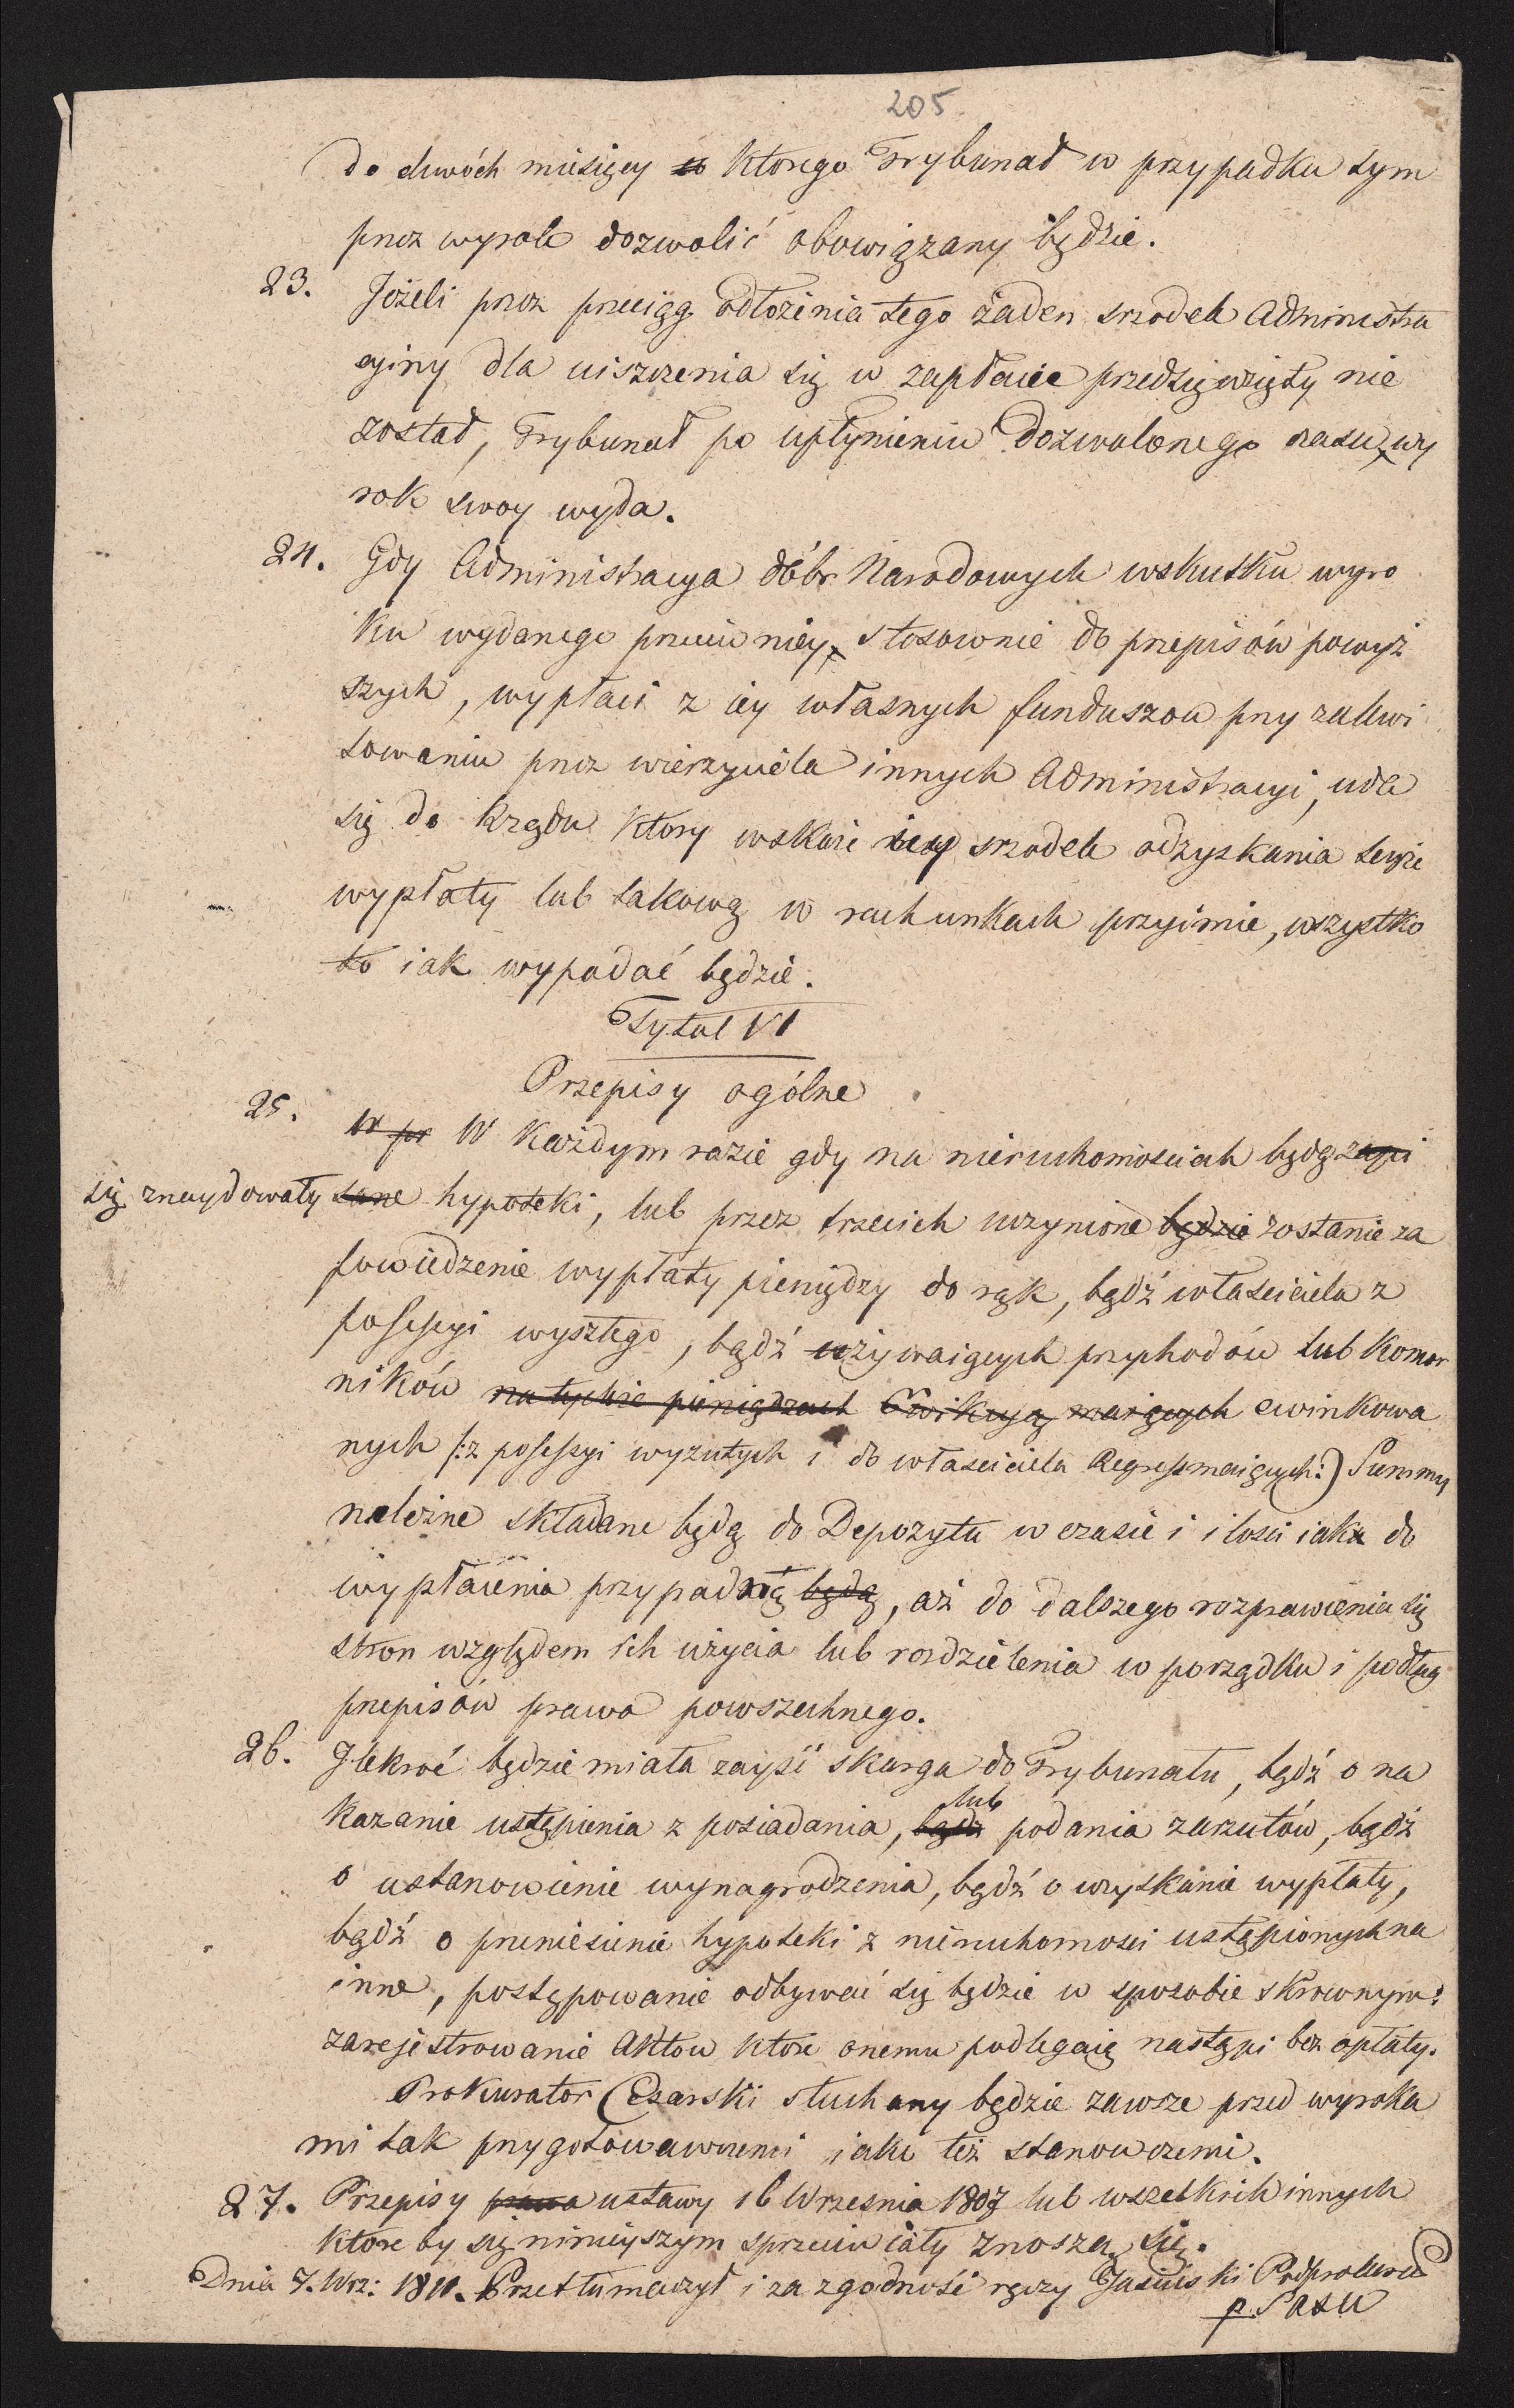 205
do dwóch miesięcy co ktorego Trybunał w przypadku tym
przez wyrok dozwolić obowiązany będzie.
23. Jeżeli przez przeciąg odłożenia tego żaden srzodek Administra
cyiny dla uiszczenia się w zapłacie przedsięwzięty nie
został, Trybunał po upłynieniu dozwolonego czasu, wy
rok swoy wyda.
24. Gdy Administracya dóbr Narodowych wskutku wyro
ku wydanego przeciw niey, stosownie do przepisów powyż
szych, wypłaci z iey własnych funduszów przy zakwi
towaniu przez wierzyciela innych Administracyi, uda
się do Rządu ktory wskaże iey srzodek odzyskania teyże
wypłaty lub takową w rachunkach przyimie, wszystko
to iak wypadać będzie.
Tytuł VI
Przepisy ogólne
25. W pr W każdym razie gdy na nieruchomosciach będą zapi
się znaydowały sane hypoteki, lub przez trzecich uczynione będzie zostanie za
powiedzenie wypłaty pieniędzy do rąk, bądź własciciela z
possessyi wyszłego, bądź używaiących przychodów lub Komor
ników na tychże pieniądzach Ewikcyą maiących ewinkowa
nych /:z possessyi wyzutych i do własciciela Regress maiących:) Summy
należne składane będą do Depozytu w czasie i ilosci iaka do
wypłacenia przypadną będą, aż do dalszego rozprawienia się
stron względem ich użycia lub rozdzielenia w porządku i podług
przepisów prawa powszechnego.
26. Ilekroć będzie miała zayść skarga do Trybunału, bądź o na
lub
kazanie ustąpienia z posiadania, bądź podania zarzutów, bądź
o ustanowienie wynagrodzenia, bądź o uzyskanie wypłaty,
bądź o przeniesienie hypoteki z nieruchomosci ustąpionych na
inne, postępowanie odbywać się będzie w sposobie skrownym:
zarejestrowanie Aktow ktore onemu podlegaią nastąpi bez opłaty.
Prokurator Cesarski słuchany będzie zawsze przed wyroka
mi tak przygotowawczemi iako też stanowczemi.
27. Przepisy prawa ustawy 16 Wrzesnia 1807 lub wszelkich innych
ktore by się ninieyszym sprzeciwiały znoszą się.
Dnia 7. Wrz: 1811. Przetłumaczył i za zgodność ręczy Podprokura
p. Sasu